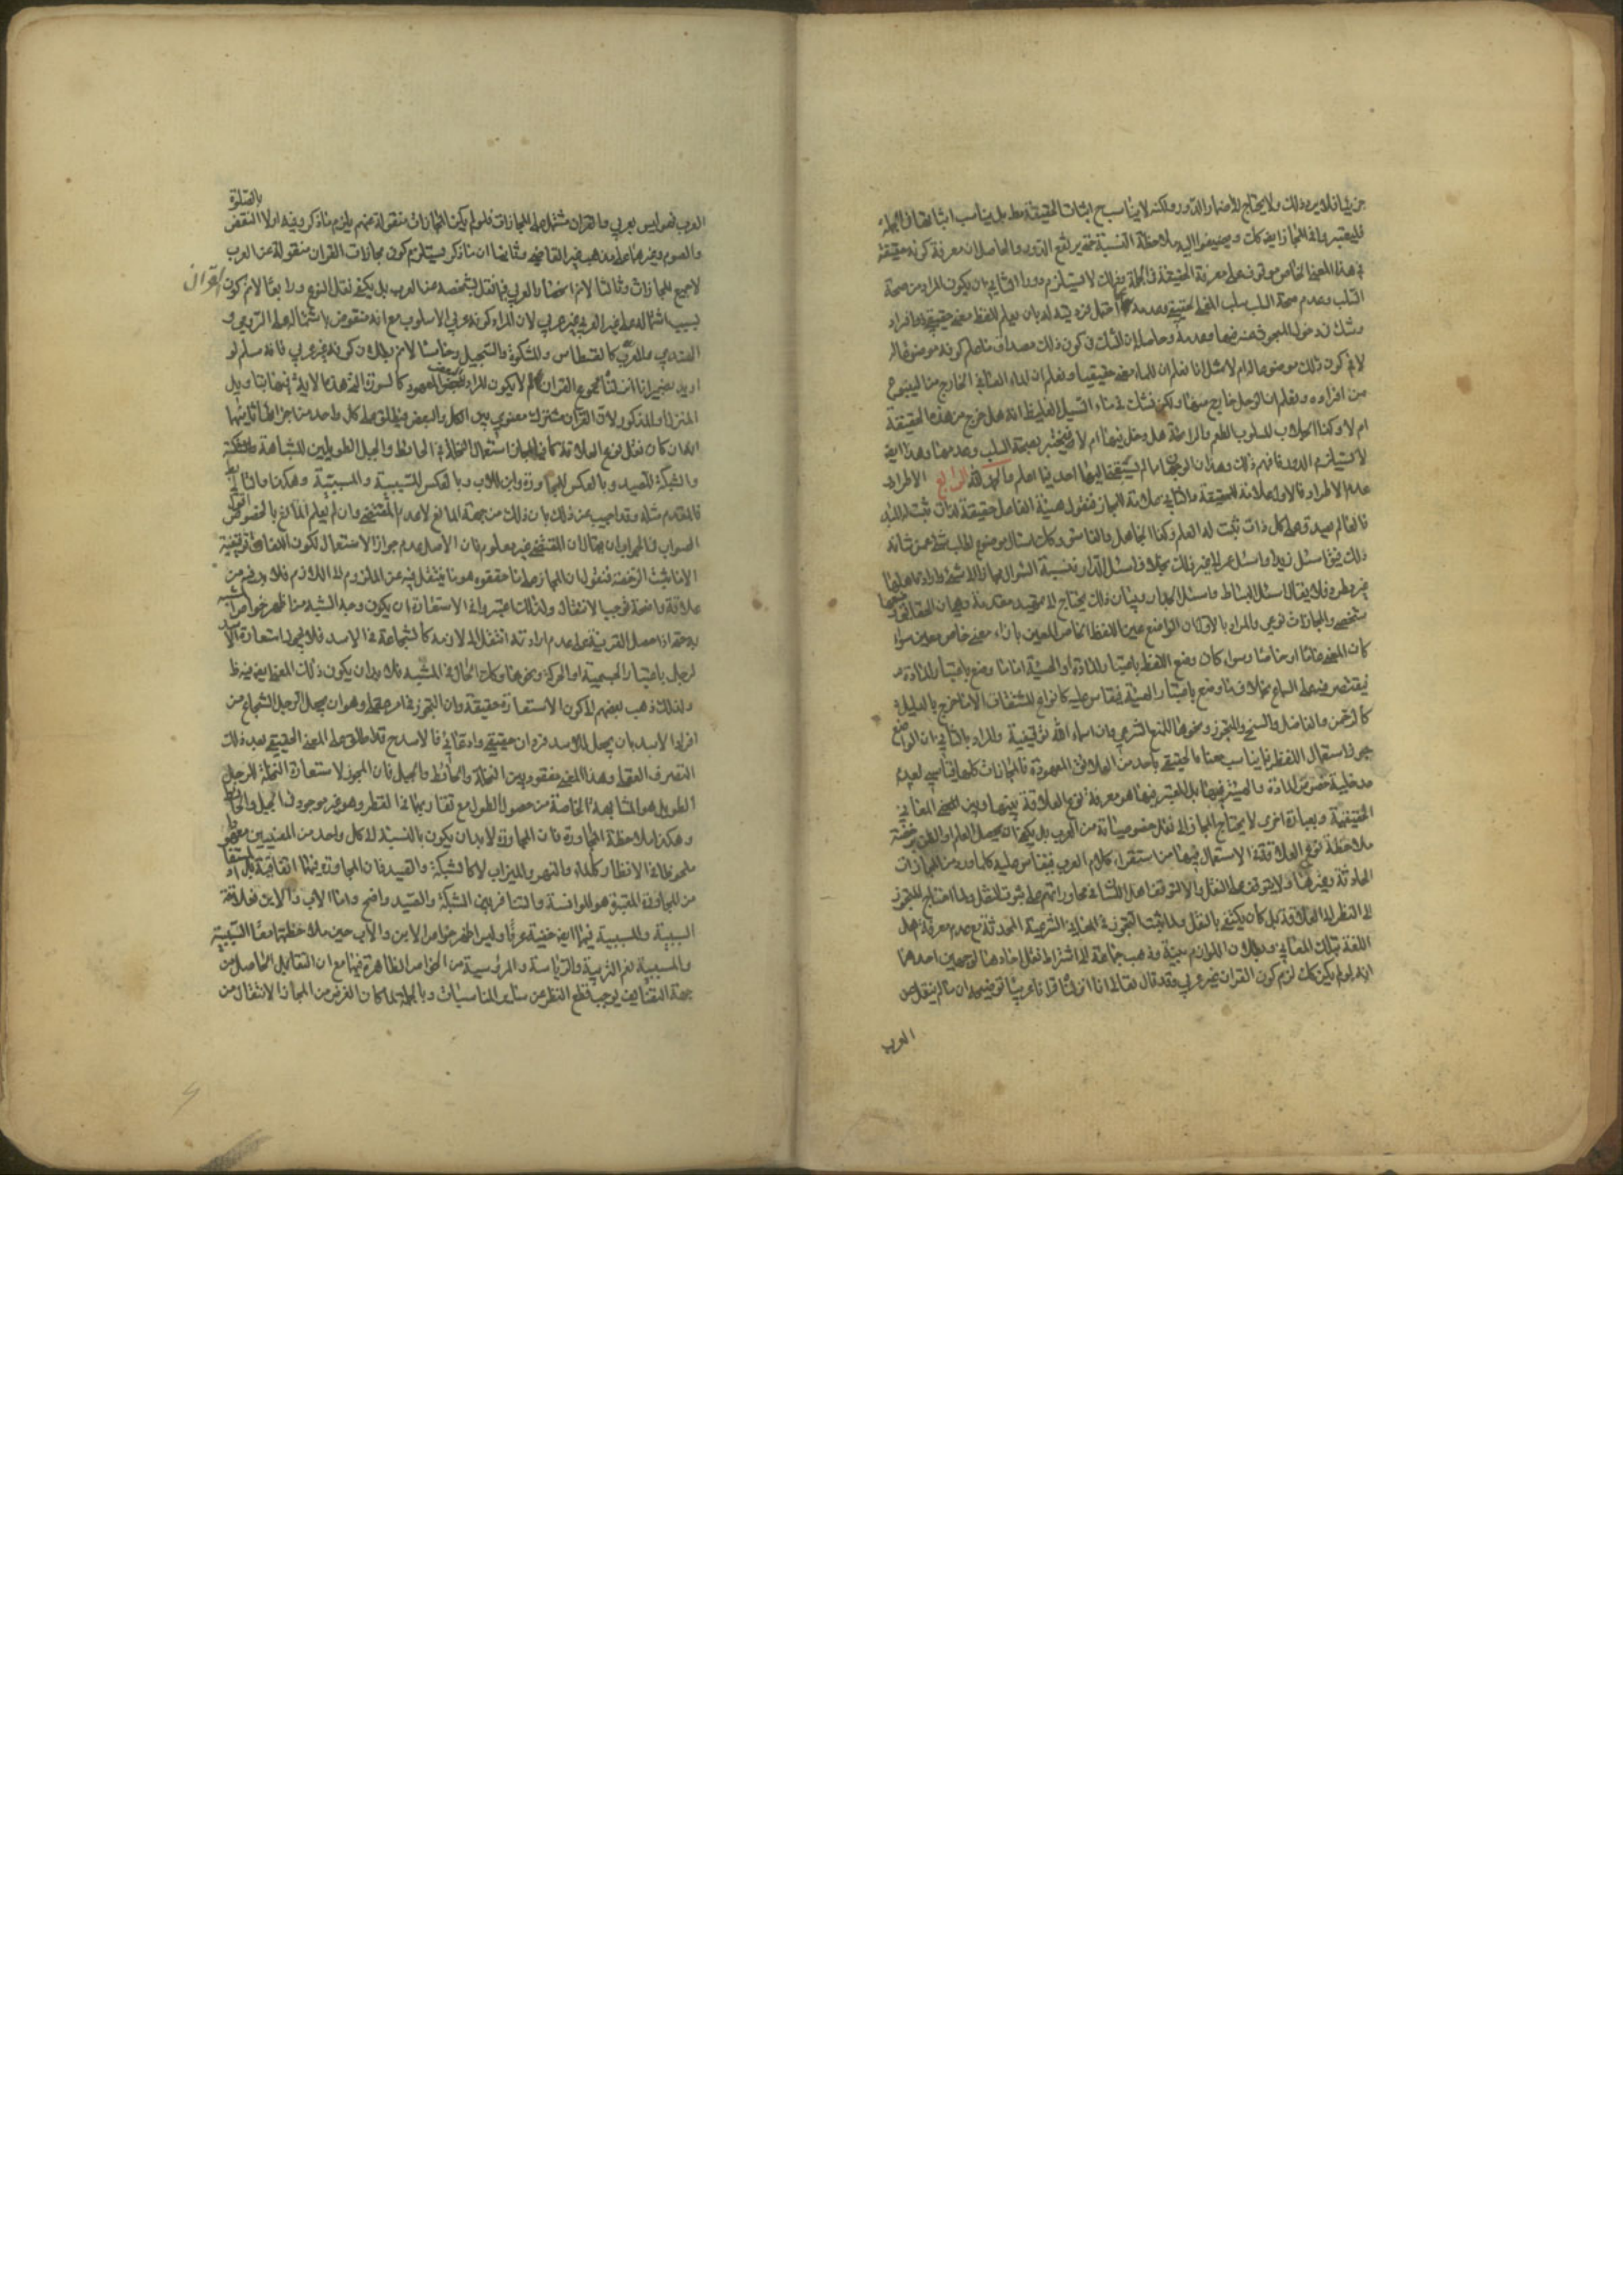 من شانه لا يرد ذلك ولا يحتاج الى اضمار الدور ولكنه لا يناسب ح اثبات الحقيقة فقط بل يناسب اثباتها في الجملة
فليعتبر وا في المجاز ايضا كك ويضيفوا اليه ملاحظة النسبة حتى يرتفع الدور والحاصل ان معرفة كونه حقيقة
في هذا المعنى الخاص موقوف على معرفة الحقيقة في الجملة وذلك لا يستلزم دورا الثاني ان يكون المراد من صحة
السلب وعدم صحة السلب سلب المعنى الحقيقي وعدمه عما احتمل فرديته له بان يعلم للفظ معنى حقيقي ذو افراد
وشك في دخول المبحوث عنه فيها وعدمه وحاصله ان الشك في كون ذلك مصداق ما علم كونه موضوعا له
لا في كون ذلك موضوعا له ام لا مثلا انا نعلم ان للماء معنى حقيقيا ونعلم ان الماء الصافي الخارج من الينبوع
من افراده ونعلم ان الوحل خارج منها ولكن نشك في ماء السيل الغليظ انه هل خرج من هذه الحقيقة
ام لا وكذا الجلاب المسلوب الطعم والرائحة هل دخل فيها ام لا فيختبر بصحة السلب وعدمها وهذا ايضا
لا يستلزم الدور فافهم ذلك وهذان الوجهان مما لم يسبقني اليهما احد فيما اعلم والحمد لله الرابع الاطراد
وعدم الاطراد فالاول علامة للحقيقة والثاني علامة للمجاز فنقول هيئة الفاعل حقيقة لذات ثبت له المبدء
فالعالم يصدق على كل ذات ثبت له العلم وكذا الجاهل والفاسق وكك اسئال موضوع لطلب شئ عمن شانه
ذلك فيق اسئل زيدا واسئل عمرا الى غير ذلك بخلاف اسئل الدار فنسبة السؤال مجازا الى شئ وارادة اهله
غير مطرد فلا يقال اسئل البساط واسئل الجدار وبيان ذلك يحتاج الى تمهيد مقدمة وهي ان الحقايق وضعها
شخصي والمجازات نوعي والمراد بالاول ان الواضع عين اللفظ الخاص المعين بازاء معنى خاص معين سواء
كان المعنى عاما او خاصا وسواء كان وضع اللفظ باعتبار المادة او الهيئة اما ما وضع باعتبار المادة
فيقتصر فيه على السماع بخلاف ما وضع باعتبار الهيئة فيقاس عليه كانواع المشتقات الا ما خرج بالدليل
كالرحمن والفاضل والسخي والمتجوز ونحوها للمنع الشرعي فان اسماء الله توقيفية والمراد بالثاني ان الواضع
جوز استعمال اللفظ فيما يناسب معناه الحقيقي باحد من العلائق المعهودة فالمجازات كلها قياسي لعدم
مدخلية خصوص المادة والهيئة فيها بل المعتبر فيها هو معرفة نوع العلاقة بينها وبين المعنى المعاني
الحقيقية وبعبارة اخرى لا يحتاج المجاز الى نقل خصوصياته من العرب بل يكفي ان يحصل العلم او الظن برخصة
ملاحظة نوع العلاقة في الاستعمال فيها من استقراء كلام العرب فيقاس عليه كلما ورد من المجازات
الحادثة وغيرها ولا يتوقف على النقل والا لتوقف اهل اللسان في محاوراتهم على ثبوت النقل ولما احتاج المتجوز
الى النظر الى العلاقة بل كان يكتفي بالنقل ولما ثبت التجوز في المعاني الشرعية المحدثة مع عدم معرفة اهل
اللغة بتلك المعاني وبطلان اللوازم بينة وذهب جماعة الى اشتراط نقل احادها لوجهين احدهما
انه لو لم يكن كك لزم كون القران غير عربي وقد قال تعالى انا انزلناه قرانا عربيا توضيحه ان ما لم ينقل من
العرب
العرب فهو ليس بعربي والقران مشتمل على المجازات فلو لم يكن المجازات منقولة عنهم يلزم ما ذكر وفيه اولا النقض بالصلوة
والصوم وغيرها على مذهب غير القاضي وثانيا ان ما ذكر يستلزم كون مجازات القران منقولة عن العرب
لا جميع المجازات وثالثا لا نم انحصار العربي فيما نقل بشخصه من العرب بل يكفي نقل النوع ورابعا لا نم كون القران
بسبب اشتماله على غير العربي غير عربي لان المراد كونه عربي الاسلوب مع انه منقوض باشتماله على الرومي و
الهندي والمعرب كالقسطاس والمشكوة والسجيل وخامسا لا نم بطلان كونه غير عربي فانه مسلم لو
اريد بضمير انا انزلناه مجموع القران لم لا يكون المراد البعض المعهود كالسورة التي هذه الاية فيها بتاويل
المنزل او المذكور ولان القران مشترك معنوي بين الكل والبعض فيطلق على كل واحد من اجزائه ثانيهما
انه ان كان نقل نوع العلاقة كافيا لجاز استعمال النخلة في الحائط والجبل الطويلين للمشابهة والشبكة
والشبكة للصيد وبالعكس للمجاورة وابن للاب وبالعكس للسببية والمسببية وهكذا والتالي بط
فالمقدم مثله وقد اجيب عن ذلك بان ذلك من جهة المانع لا عدم المقتضي وان لم يعلم المانع بالخصوص ولكن
الصواب في الجواب ان يقال ان المقتضي غير معلوم فان الاصل عدم جواز الاستعمال لكون اللغات توقيفية
الا ما يثبت الرخصة فنقول ان المجاز على ما حققوه هو ما ينتقل فيه عن الملزوم الى اللازم فلا بد فيه من
علاقة واضحة توجب الانتقال ولذلك اعتبر وا في الاستعارة ان يكون وجه الشبه من اظهر خواص المشبه
به حتى اذا حصل القرينة على عدم ارادته انتقل الى لازمه كالشجاعة في الاسد فلا يجوز استعارة الاسد
لرجل باعتبار الجسمية او الحركة ونحوهما وكك الحال في المشبه فلا بد ان يكون ذلك المعنى ايضا فيه ظ
ولذلك ذهب بعضهم الى كون الاستعارة حقيقة وان التجوز في امر عقلي وهو ان يجعل الرجل الشجاع من
افراد الاسد بان يجعل للاسد فردان حقيقي وادعائي فالاسد ح قد اطلق على المعنى الحقيقي بعد ذلك
التصرف العقلي وهذا المعنى مفقود بين النخلة والحائط والجبل فان المجوز لاستعارة النخلة للرجل
الطويل هو المشابهة الخاصة من حصول الطول مع تقاربهما في القطر وهو غير موجود في الجبل والحائط
وهكذا ملاحظة المجاورة فان المجاورة لا بد ان يكون بالنسبة الى كل واحد من المعنيين معهودا
ملحوظا في الانظار كالماء والنهر والميزاب لا كالشبكة والصيد فان المجاورة فيهما اتفاقية بل المستفاد
من المجاورة المعتبرة هو الموانسة والتنافر بين الشبكة والصيد واضح واما الاب والابن فعلاقة
السببية والمسببية فيهما ايضا خفية عرفا وليس اظهر خواص الابن والاب حين ملاحظتهما معا السببية
والمسببية نعم التربية والرياسة والمرؤسية من الخواص الظاهرة فيهما مع ان التقابل الحاصل من
جهة التضايف يوجب قطع النظر عن سائر المناسبات وبالجملة لما كان الغرض من المجاز الانتقال من